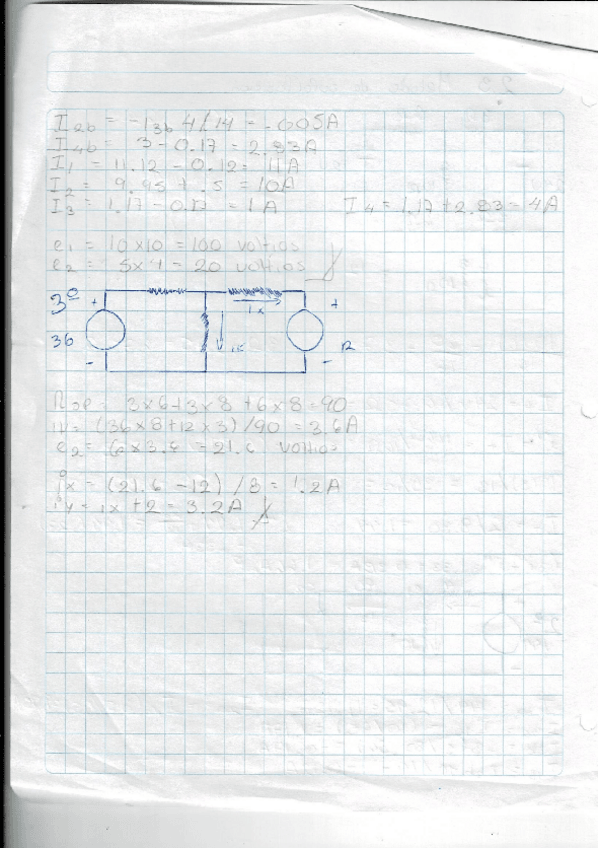 I2b = -I3b 4/14 = -.005A
I4b = 3 - 0.17 = 2.83A
I1 = 11.12 - 0.12 = 11A
I2 = 9.45 + .5 = 10A
I3 = 1.17 - 0.17 = 1A I4 = 1.17 + 2.83 = 4A
e1 = 10x10 = 100 voltios
e2 = 5x4 = 20 voltios
3º + +
ix
36 12
- -
3x6+3x8+6x8=90
(36x8+12x3)/90 = 3.6A
e2 = 6x3.6 = 21.6 voltios
ix = (21.6 - 12)/8 = 1.2A
iy = ix + 2 = 3.2A